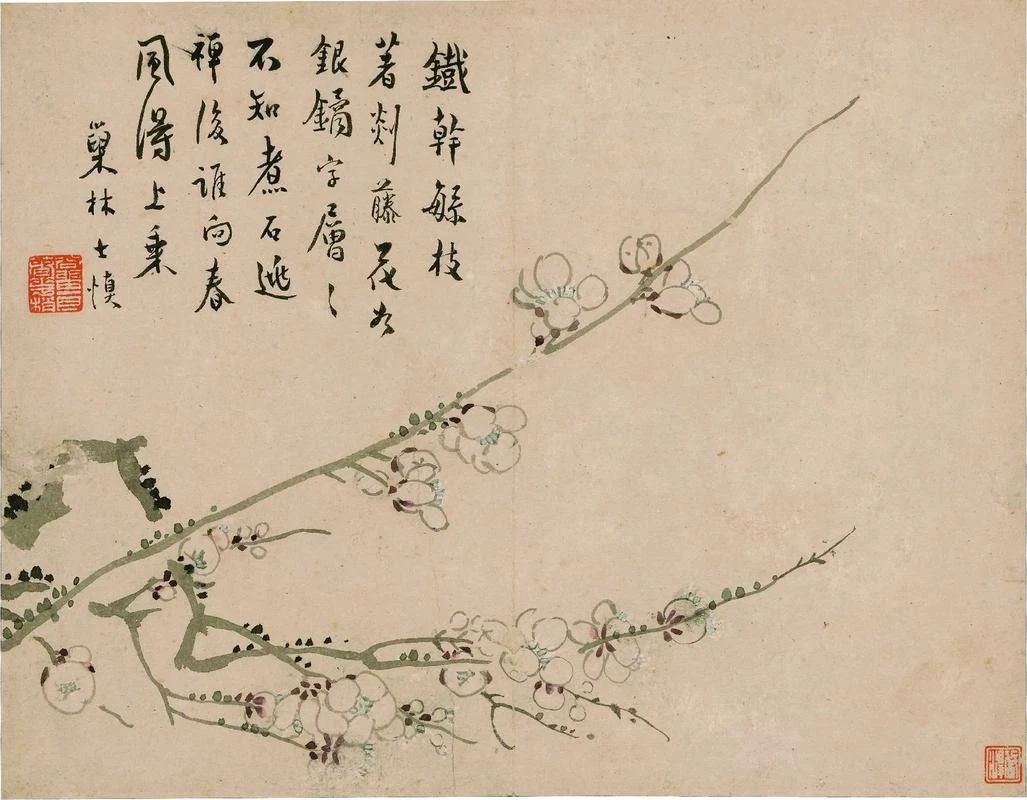 鐵幹緐枝
著剡藤花如
銀字層〻
不知煮石逃
禪後誰向春
風得上乘
巢林士慎